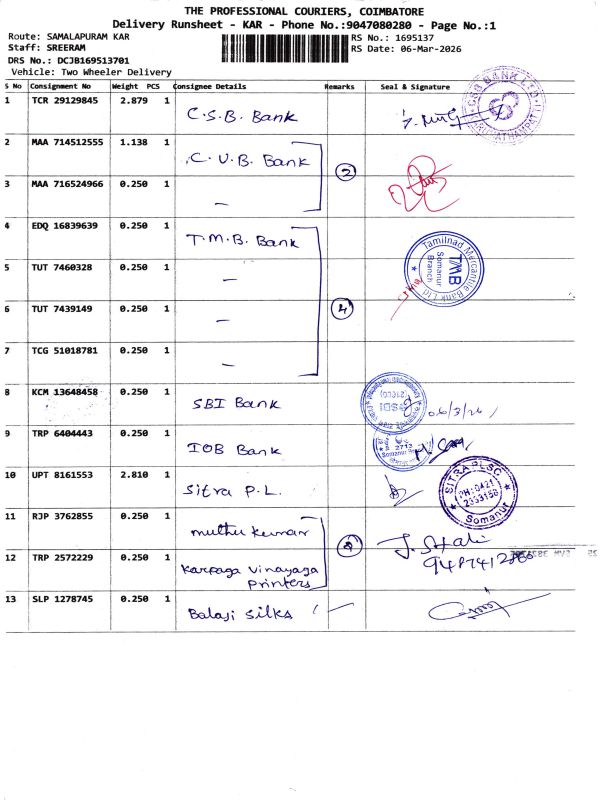 THE PROFESSIONAL COURIERS, COIMBATORE
Delivery Runsheet - KAR - Phone No.:9047080280 - Page No.:1
Route: SAMALAPURAM KAR
RS No.: 1695137
Staff: SREERAM
RS Date: 06-Mar-2026
DRS No.: DCJB169513701
Vehicle: Two Wheeler Delivery
S No Consignment No Weight PCS Consignee Details Remarks Seal & Signature
1 TCR 29129845 2.879 1 C.S.B. Bank
2 MAA 714512555 1.138 1 C.U.B. Bank 2
3 MAA 716524966 0.250 1 –
4 EDQ 16839639 0.250 1 T.M.B. Bank
Tamilnad Mercantile Bank Ltd
TMB
Somanur
Branch
5 TUT 7460328 0.250 1 –
6 TUT 7439149 0.250 1 – 4
7 TCG 51018781 0.250 1 –
8 KCM 13648458 0.250 1 SBI Bank
9 TRP 6404443 0.250 1 IOB Bank
2713
Somanur
10 UPT 8161553 2.810 1 Sitra P.L.
SITRA PLSC
PH:0421
Somanur
11 RJP 3762855 0.250 1 muthu kumar
12 TRP 2572229 0.250 1 Karpaga Vinayaga
Printers
13 SLP 1278745 0.250 1 Balaji Silks